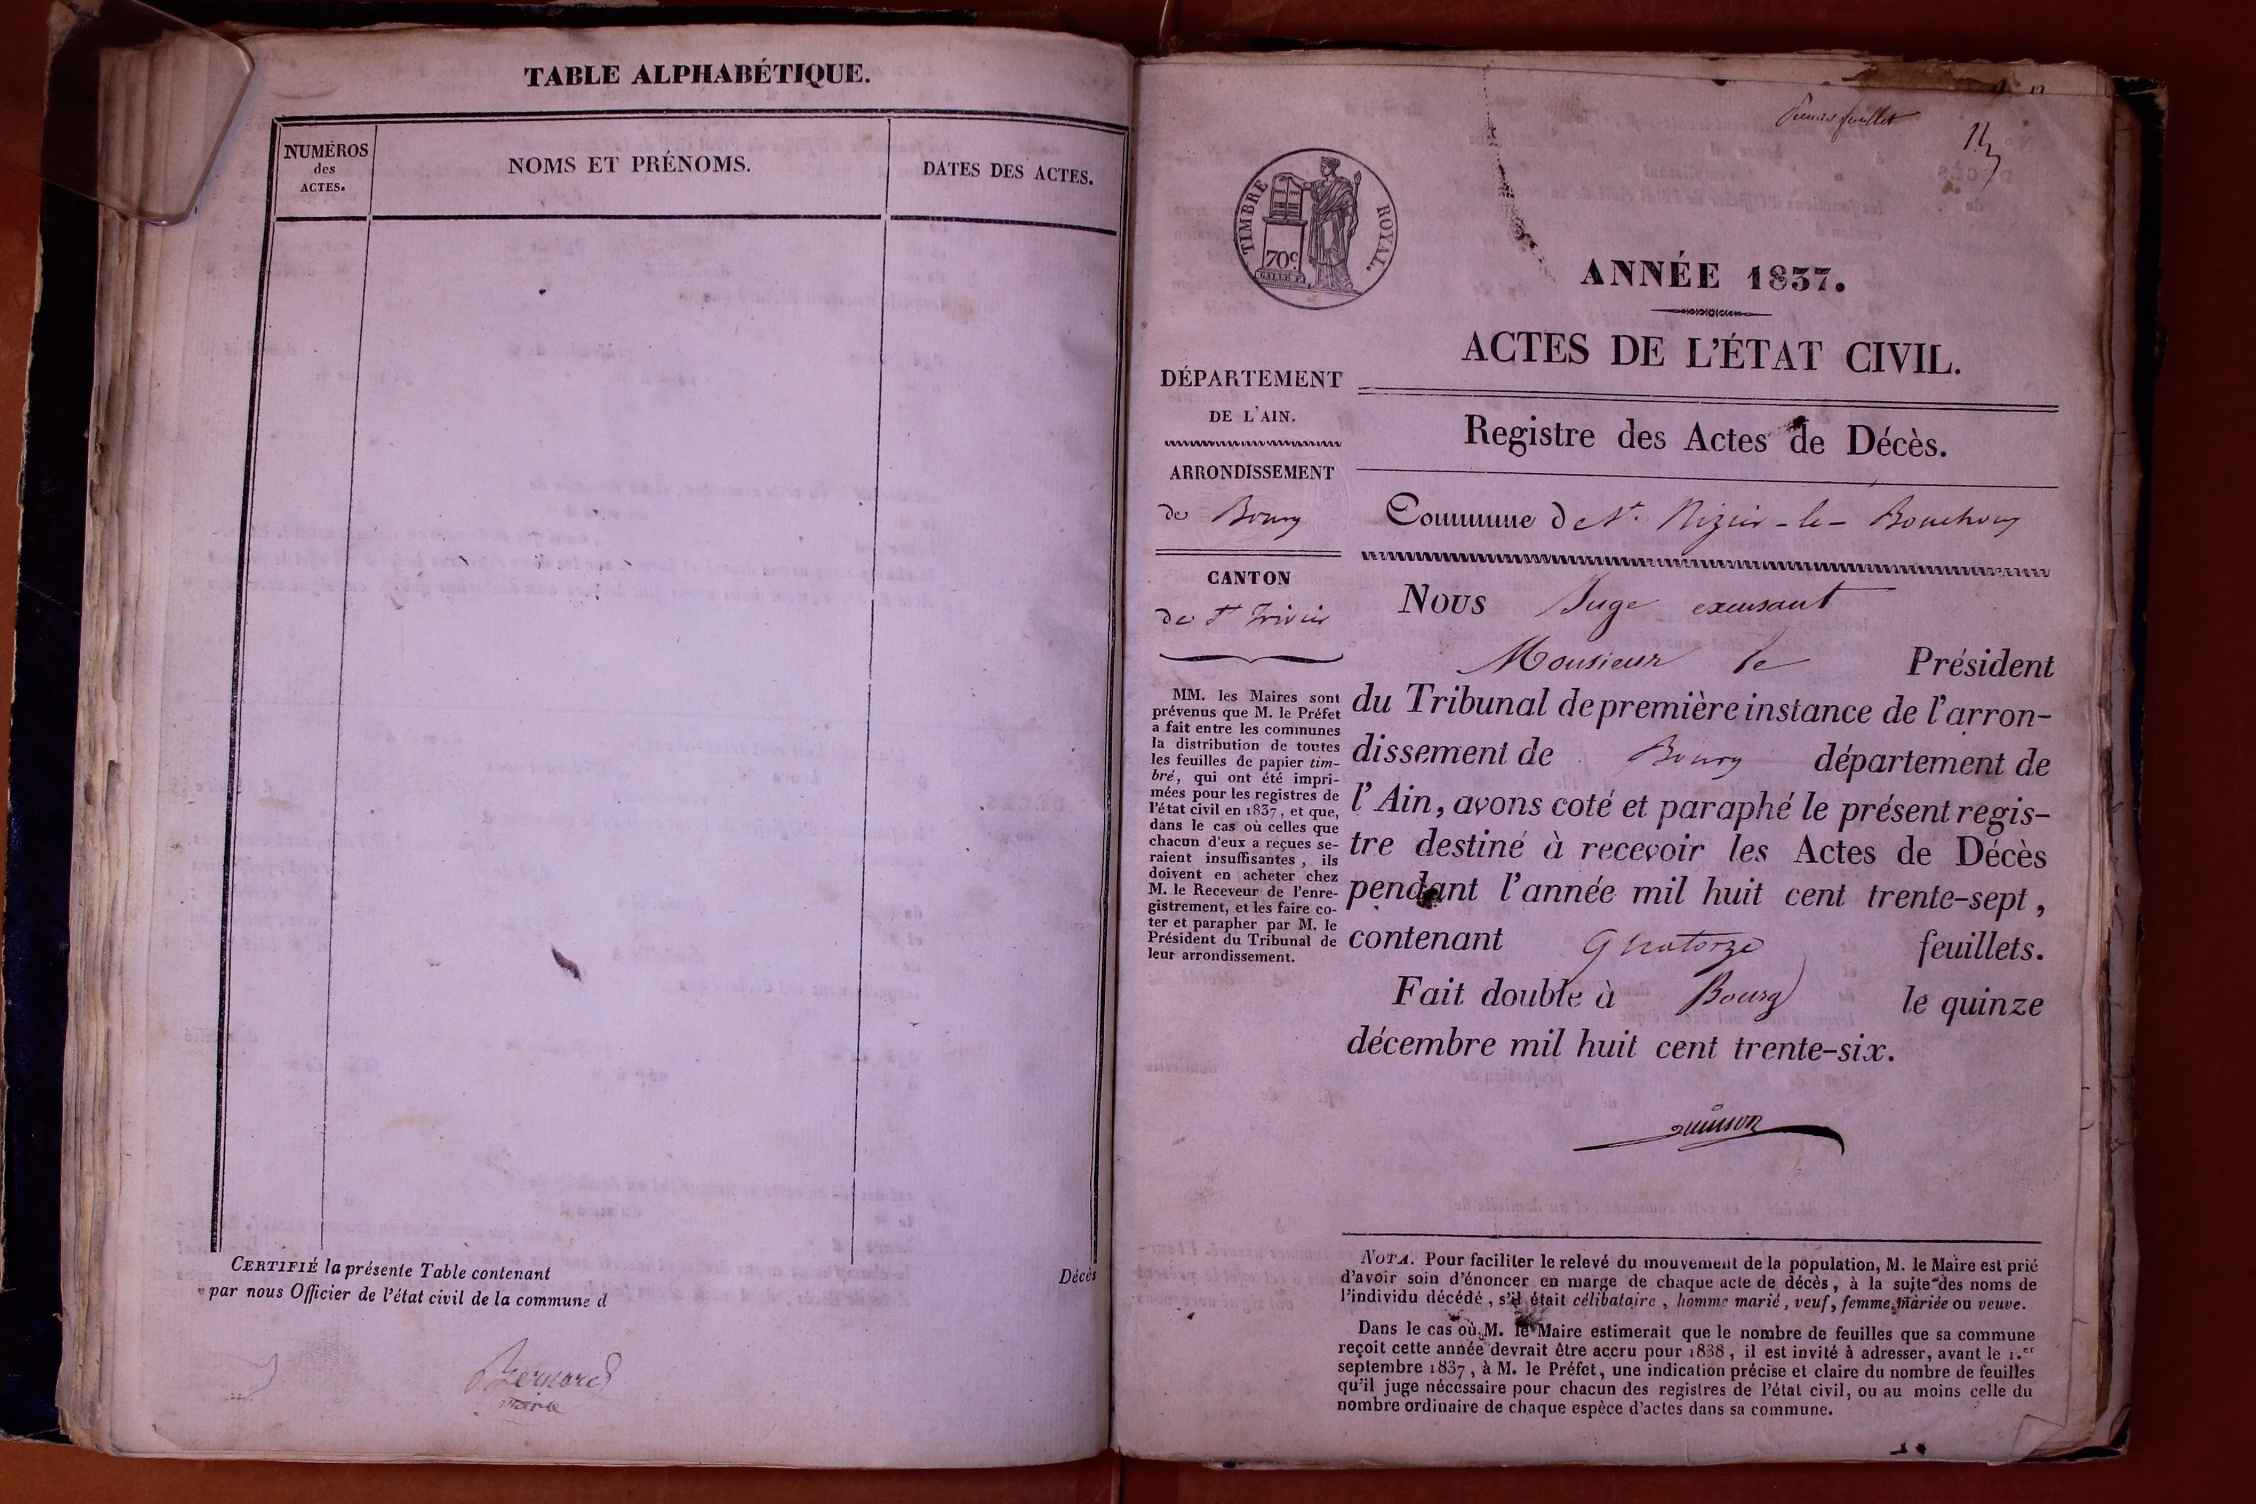 TABLE ALPHABÉTIQUE.
NUMÉROS
des
ACTES.
NOMS ET PRÉNOMS.
DATES DES ACTES.
CERTIFIÉ la présente Table contenant
Décès
par nous Officier de l'état civil de la commune d
Bernard
maire
Premier feuillet
TIMBRE ROYAL.
70c
ANNÉE 1837.
ACTES DE L'ÉTAT CIVIL.
DÉPARTEMENT
DE L'AIN.
ARRONDISSEMENT
de Bourg
CANTON
de St Trivier
MM. les Maires sont
prévenus que M. le Préfet
a fait entre les communes
la distribution de toutes
les feuilles de papier tim-
bré, qui ont été impri-
mées pour les registres de
l'état civil en 1837, et que,
dans le cas où celles que
chacun d'eux a reçues se-
raient insuffisantes, ils
doivent en acheter chez
M. le Receveur de l'enre-
gistrement, et les faire co-
ter et parapher par M. le
Président du Tribunal de
leur arrondissement.
Registre des Actes de Décès.
Commune de St. Nizier-le-Bouchoux
NOUS Juge excusant
Monsieur le Président
du Tribunal de première instance de l'arron-
dissement de Bourg département de
l'Ain, avons coté et paraphé le présent regis-
tre destiné à recevoir les Actes de Décès
pendant l'année mil huit cent trente-sept,
contenant quatorze feuillets.
Fait double à Bourg le quinze
décembre mil huit cent trente-six.
NOTA. Pour faciliter le relevé du mouvement de la population, M. le Maire est prié
d'avoir soin d'énoncer en marge de chaque acte de décès, à la suite des noms de
l'individu décédé, s'il était célibataire, homme marié, veuf, femme mariée ou veuve.
Dans le cas où M. le Maire estimerait que le nombre de feuilles que sa commune
reçoit cette année devrait être accru pour 1838, il est invité à adresser, avant le 1.er
septembre 1837, à M. le Préfet, une indication précise et claire du nombre de feuilles
qu'il juge nécessaire pour chacun des registres de l'état civil, ou au moins celle du
nombre ordinaire de chaque espèce d'actes dans sa commune.